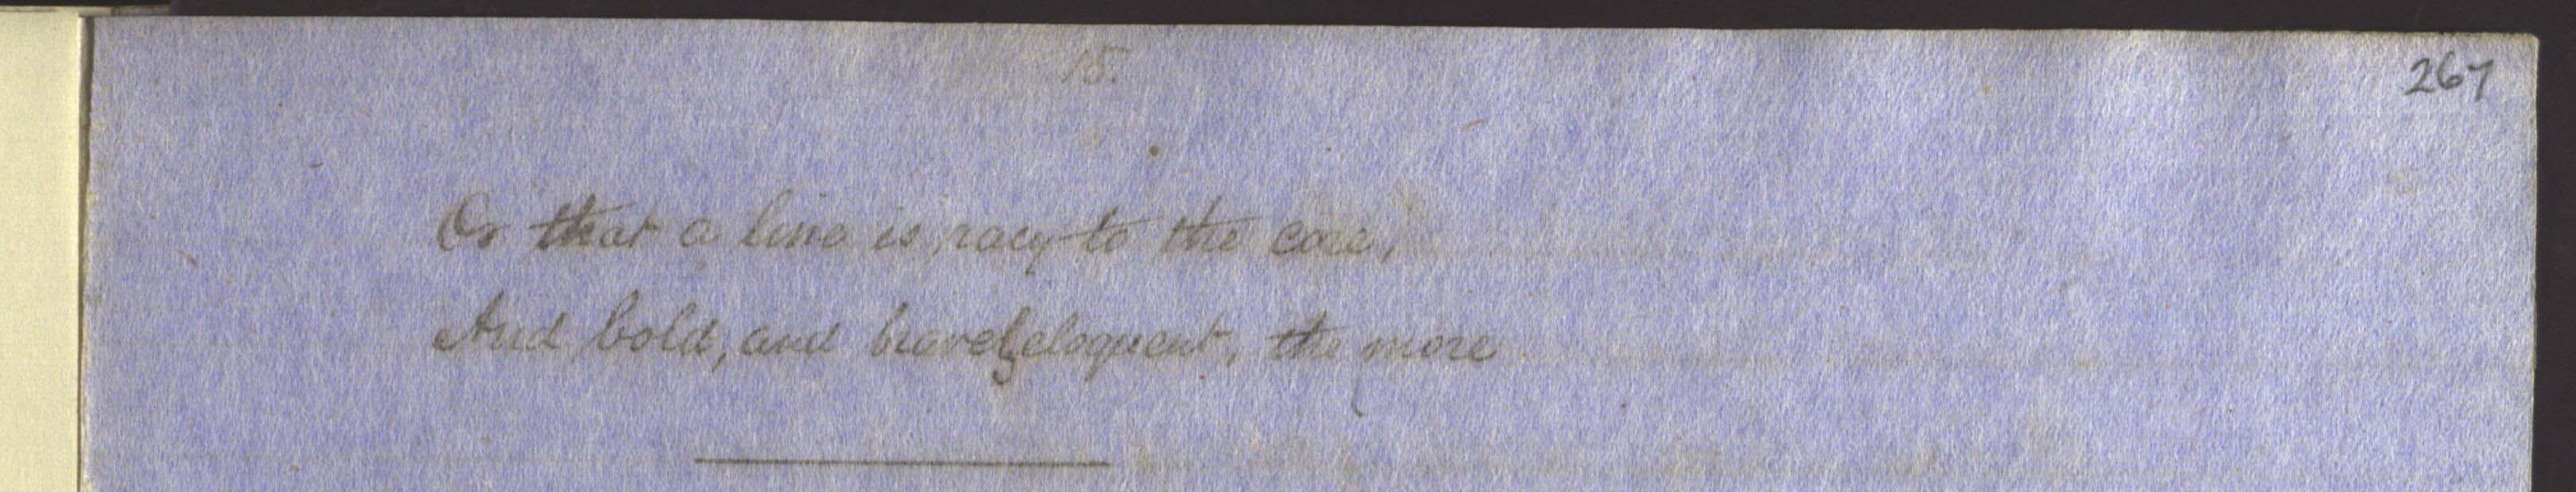 15.
267
Or that a line is racy to the core,
And bold, and bravely eloquent, the more